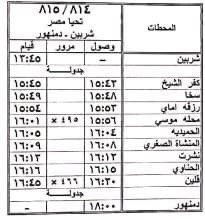 ٨١٥/٨١٤
تحيا مصر
شربين - دمنهور
المحطات وصول مرور قيام
شربين – ١٣:٤٥
جدولــــة
كفر الشيخ ١٥:٤٣ ١٥:٤٥
سخا ١٥:٤٨ ١٥:٤٩
رزقه اماي ١٥:٥٣ ١٥:٥٤
محله موسي ١٥:٥٦ ٤٩٥ × ١٦:٠١
الحميديه ١٦:٠٤ ١٦:٠٥
المنشاة الصغري ١٦:٠٨ ١٦:٠٩
نشرت ١٦:١٢ ١٦:١٣
الحناوي ١٦:١٥ ١٦:١٦
قلين ١٦:٢٠ ٤٦٦ × ١٦:٤٥
جدولــــة
دمنهور ١٨:٠٠ –